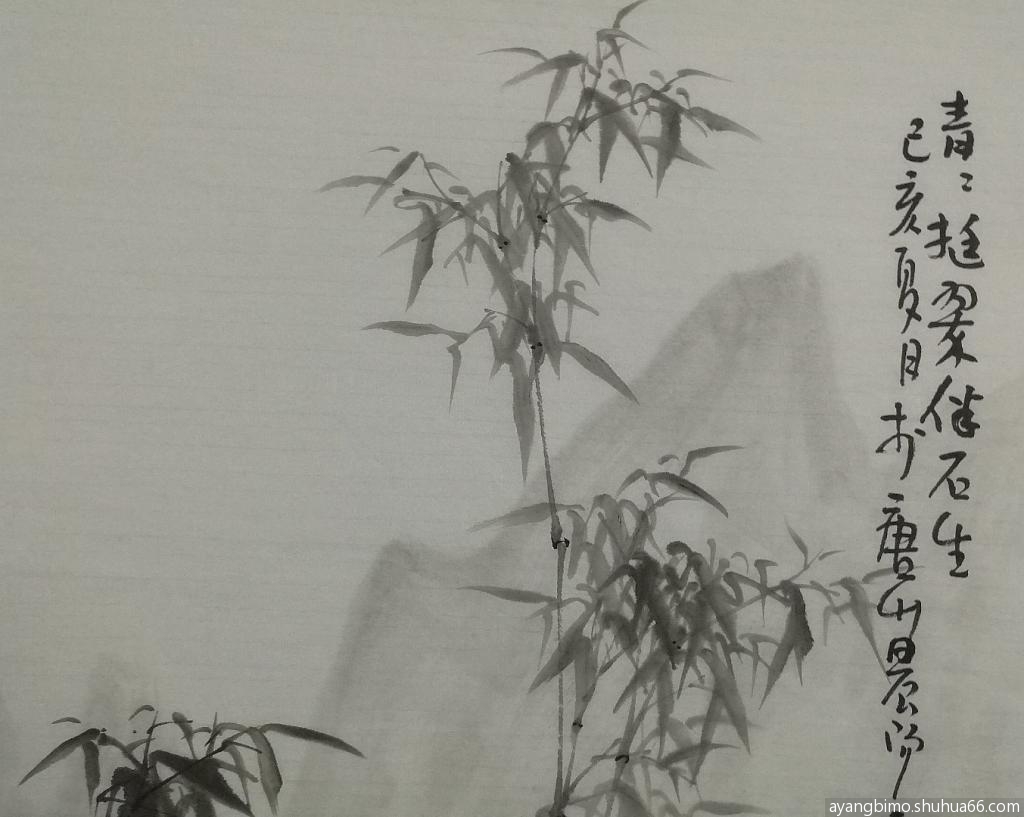 青〻挺翠伴石生
己亥夏月于唐山晨阳
ayangbimo.shuhua66.com